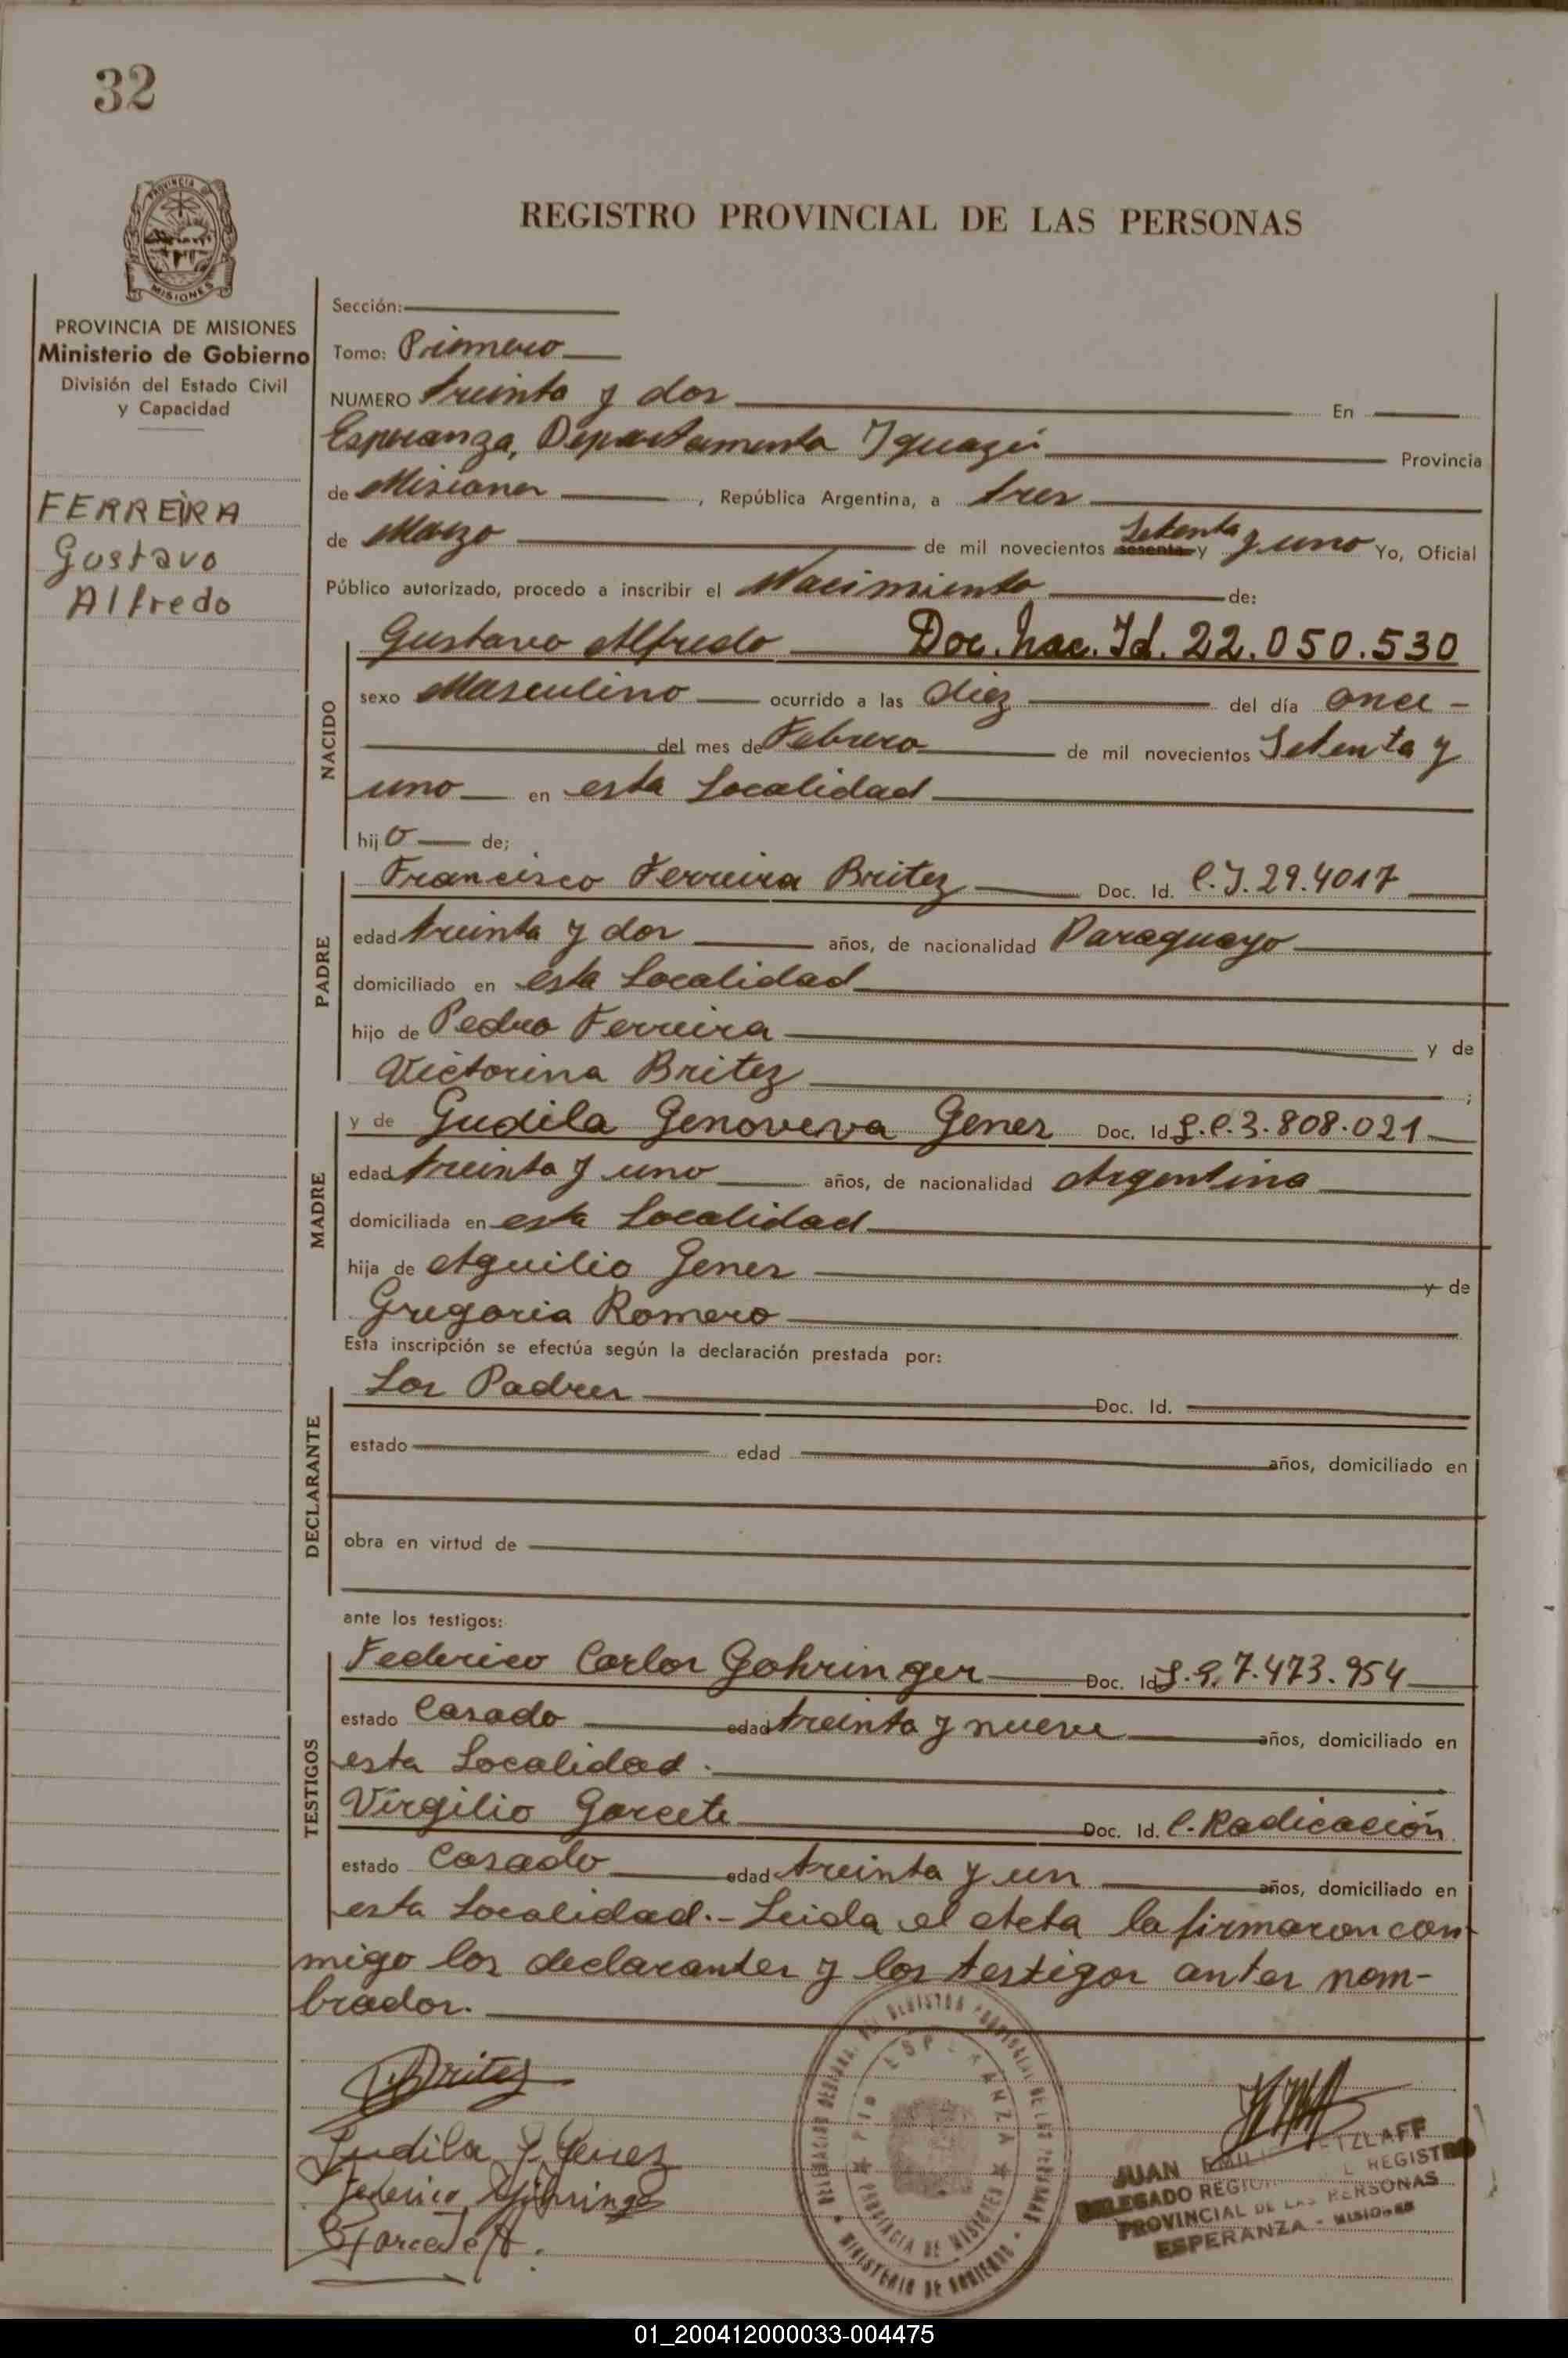 32
PROVINCIA DE
MISIONES
REGISTRO PROVINCIAL DE LAS PERSONAS
PROVINCIA DE MISIONES
Ministerio de Gobierno
División del Estado Civil
y Capacidad
FERREIRA
Gustavo
Alfredo
Sección:
Tomo: Primero
NUMERO treinta y dos En
Esperanza, Departamento Iguazú Provincia
de Misiones, República Argentina, a tres
de Marzo de mil novecientos sesenta y Setenta y uno Yo, Oficial
Público autorizado, procedo a inscribir el Nacimiento de:
NACIDO
Gustavo Alfredo Doc. Nac. Id. 22.050.530
sexo Masculino ocurrido a las diez del día once -
del mes de Febrero de mil novecientos Setenta y
uno en esta Localidad
hijo de;
PADRE
Francisco Ferreira Britez Doc. Id. C.I. 29.4017
edad treinta y dos años, de nacionalidad Paraguayo
domiciliado en esta Localidad
hijo de Pedro Ferreira y de
Victorina Britez ;
MADRE
y de Gudila Genoveva Genes Doc. Id. L.C. 3.808.021
edad treinta y uno años, de nacionalidad Argentina
domiciliada en esta Localidad
hija de Aguilio Genes y de
Gregoria Romero
Esta inscripción se efectúa según la declaración prestada por:
DECLARANTE
Los Padres Doc. Id.
estado edad años, domiciliado en
obra en virtud de
ante los testigos:
TESTIGOS
Federico Carlos Gohringer Doc. Id. L.E. 7.473.954
estado Casado edad treinta y nueve años, domiciliado en
esta Localidad.
Virgilio Garcete Doc. Id. C. Radicación
estado Casado edad treinta y un años, domiciliado en
esta Localidad.- Leida el Acta la firmaron con
migo los declarantes y los testigos antes nom-
brados.
Britez
Gudila G. Genes
Federico Göhringer
ESPERANZA
PROVINCIA DE MISIONES
MINISTERIO DE GOBIERNO
JUAN
DELEGADO REGIONAL REGISTRO
PROVINCIAL DE LAS PERSONAS
ESPERANZA - MISIONES
01_200412000033-004475